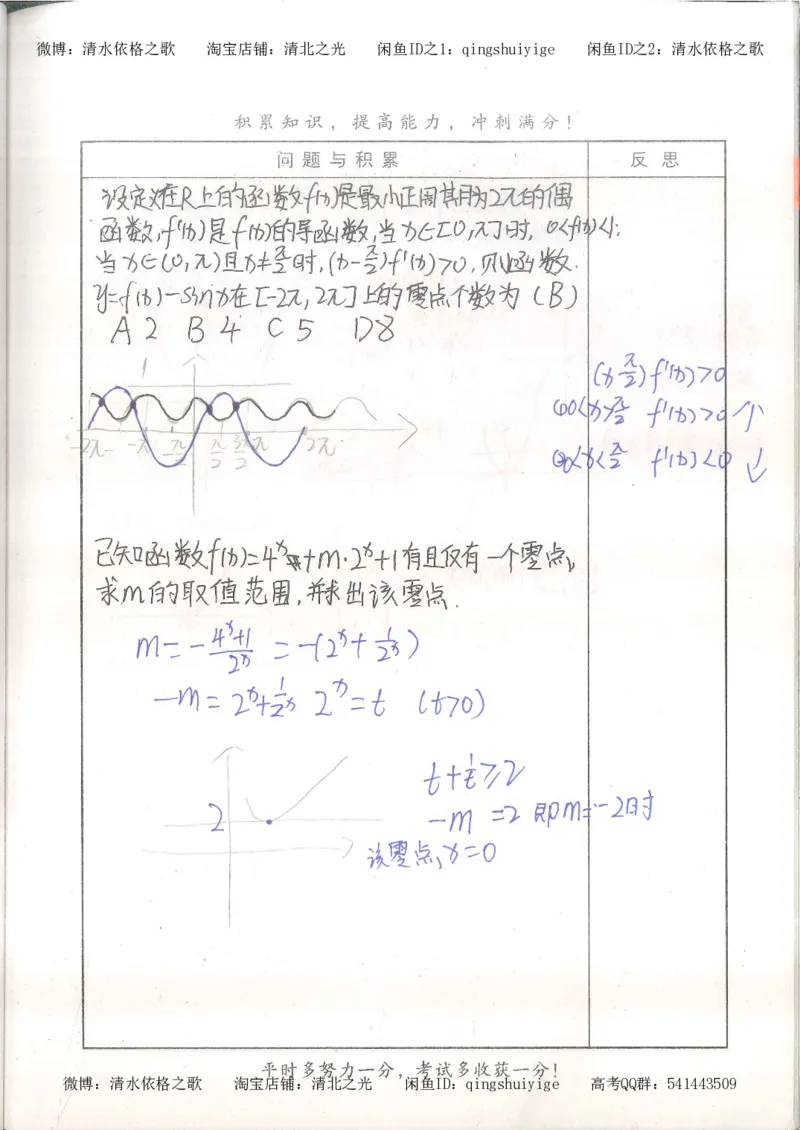 微博：清水依格之歌 淘宝店铺：清北之光 闲鱼ID之1：qingshuiyige 闲鱼ID之2：清水依格之歌
积累知识，提高能力，冲刺满分！
问题与积累 反思
设定义在R上的函数f(x)是最小正周期为2π的偶
函数,f'(x)是f(x)的导函数,当x∈[0,π]时, 0<f(x)<1;
当x∈(0,π)且x≠π/2时,(x-π/2)f'(x)>0,则函数.
y=f(x)-sinx在[-2π,2π]上的零点个数为(B)
A 2 B 4 C 5 D 8
(x π/2)f'(x)>0
x>π/2 f'(x)>0 ↑
0<x<π/2 f'(x)<0 ↓
1
-2π -π -π/2 π/2 3π/2 π 2π
已知函数f(x)=4^x+m·2^x+1有且仅有一个零点,
求m的取值范围,并求出该零点.
m=-(4^x+1)/2^x =-(2^x+1/2^x)
-m=2^x+1/2^x 2^x=t (t>0)
t+1/t≥2
2
-m=2 即m=-2时
该零点,x=0
平时多努力一分，考试多收获一分！
微博：清水依格之歌 淘宝店铺：清北之光 闲鱼ID：qingshuiyige 高考QQ群：541443509